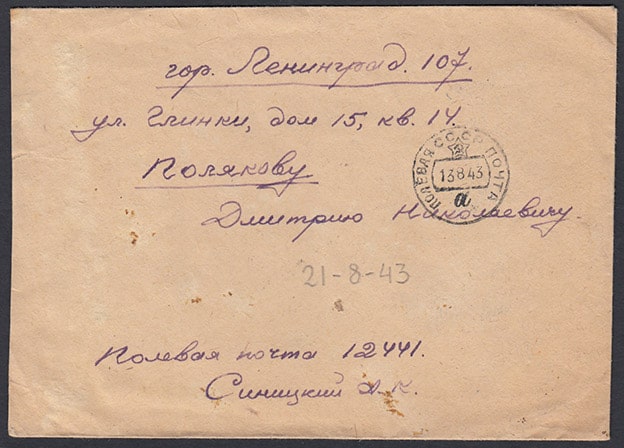 гор. Ленинград. 107.
ул. Глинки, дом 15, кв. 14.
Полякову
Дмитрию Николаевичу.
ПОЛЕВАЯ СССР ПОЧТА
13 8 43
а
21-8-43
Полевая почта 12441.
Синицкий